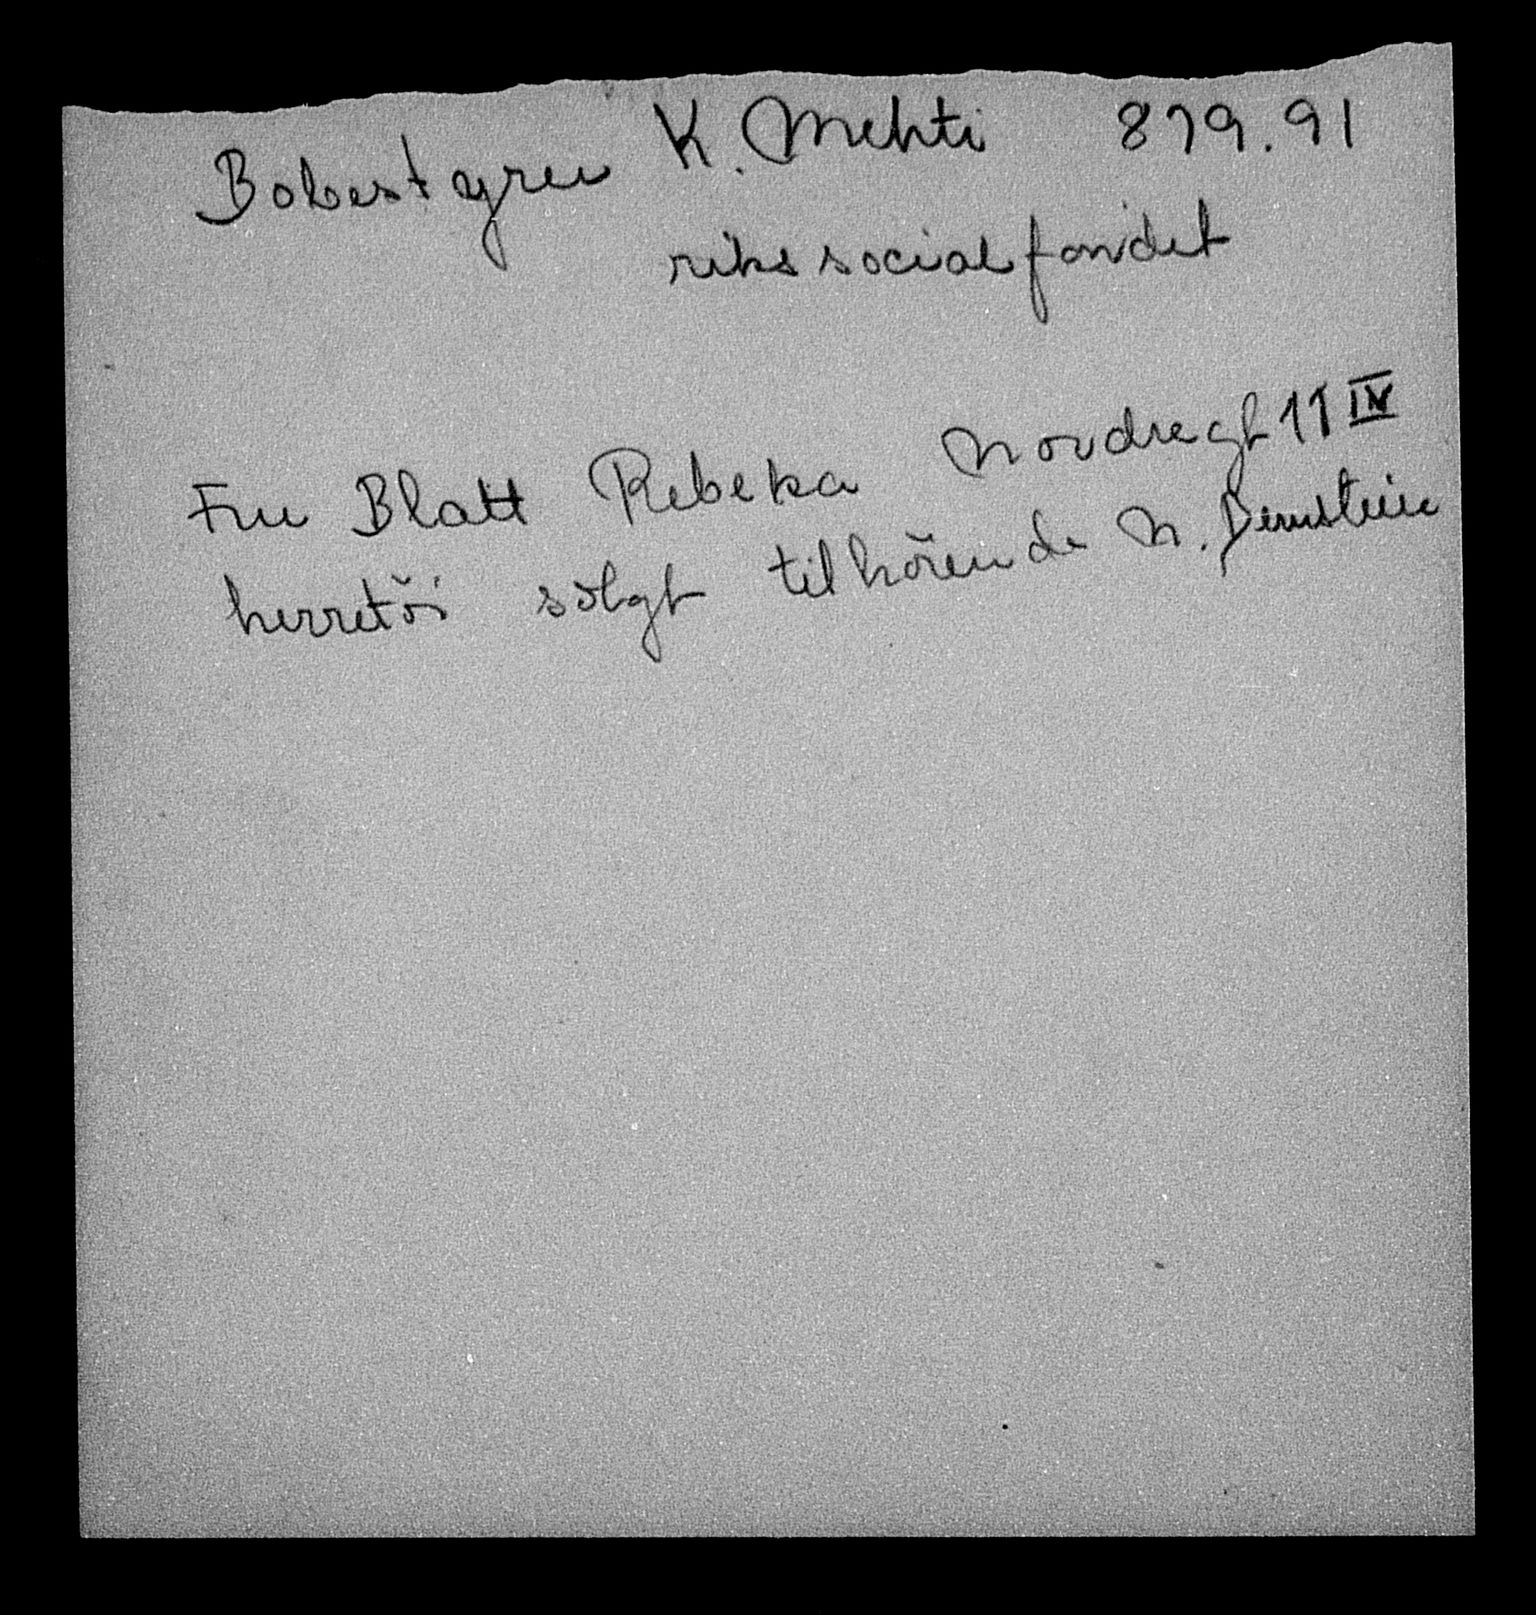 Bobestyreren K. Mehti 879.91
rikssocialfondet
Fru Blatt Rebeka Nordregt 11 IV
herretöi sölgt tilhörende N. Bernstein